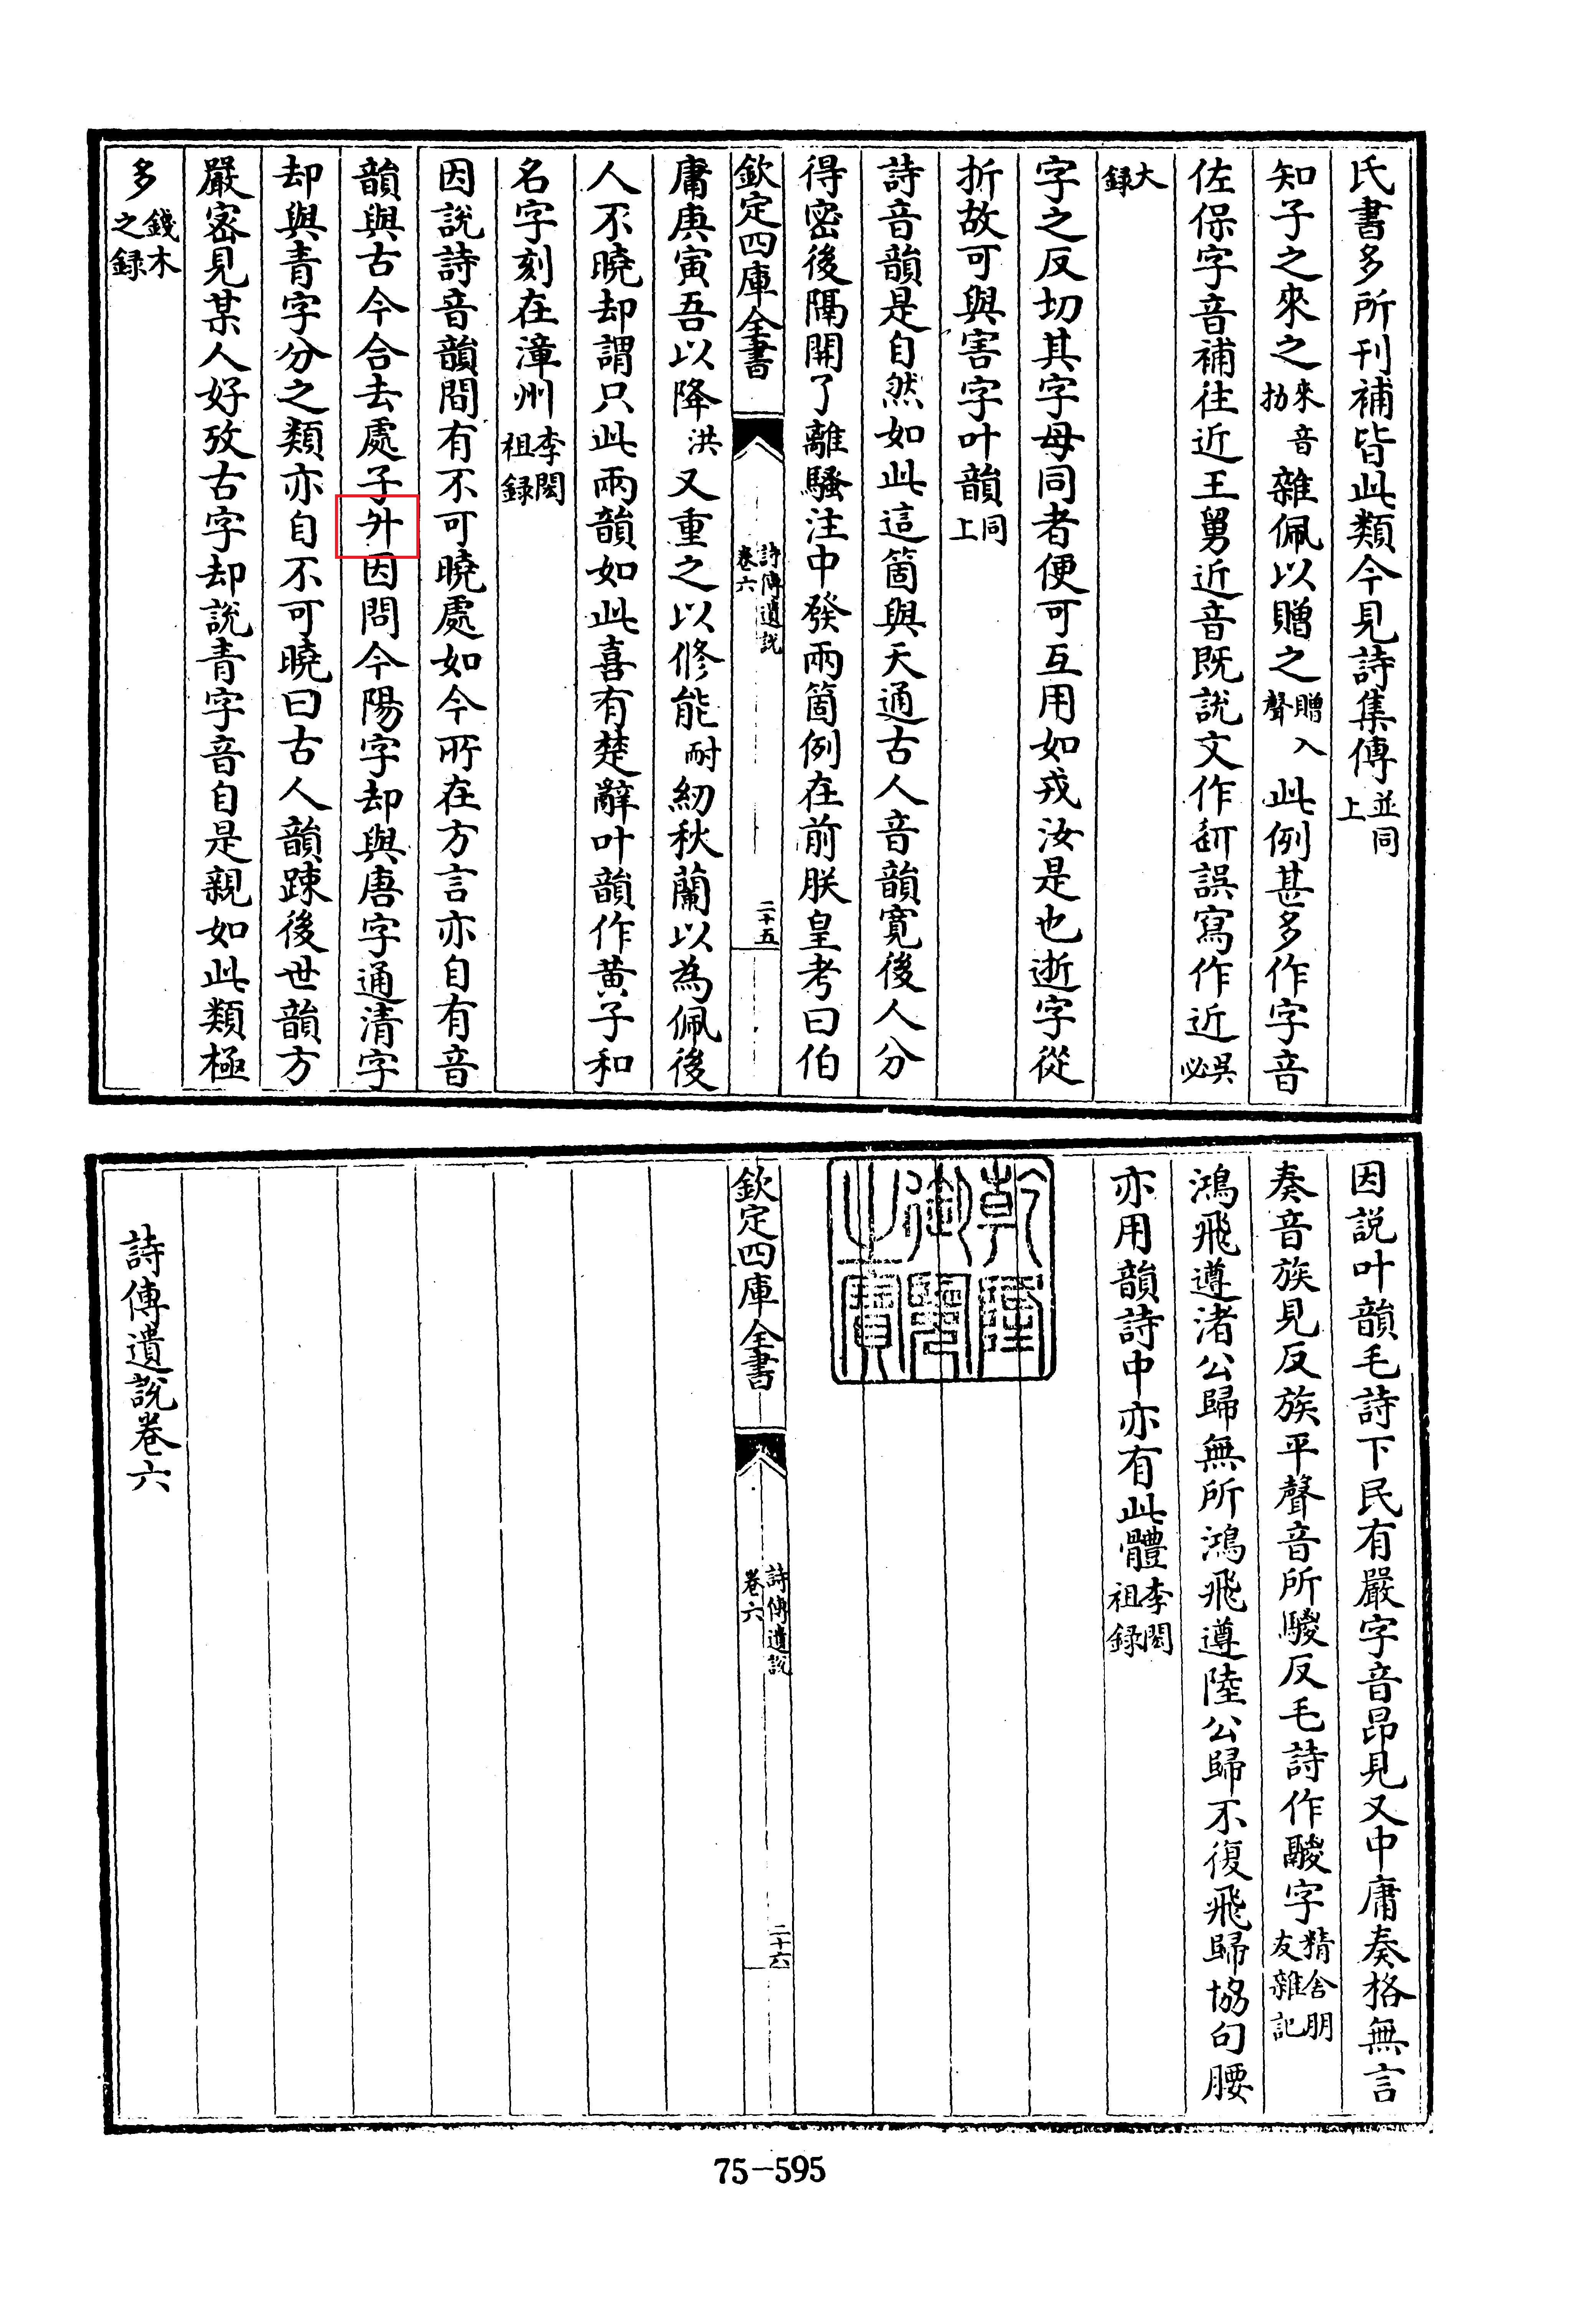 氏書多所刊補皆此類今見詩集傳並同上
知子之來之來音扐雜佩以贈之贈入聲此例甚多作字音
佐保字音補徃近王舅近音既說文作誤寫作近吳必
大録
字之反切其字母同者便可互用如戎汝是也逝字從
折故可與害字叶韻同上
詩音韻是自然如此這箇與天通古人音韻寛後人分
得密後隔開了離騷注中發兩箇例在前朕皇考曰伯
欽定四庫全書
詩傳遺說
卷六
二十五
庸庚寅吾以降洪又重之以修能耐紉秋蘭以為佩後
人不曉却謂只此兩韻如此喜有楚辭叶韻作黄子和
名字刻在漳州李閎祖録
因說詩音韻間有不可曉處如今所在方言亦自有音
韻與古今合去處子升因問今陽字却與唐字通清字
却與青字分之類亦自不可曉曰古人韻踈後世韻方
嚴密見某人好攷古字却說青字音自是親如此類極
多錢木之録
因説叶韻毛詩下民有嚴字音昂見又中庸奏格無言
奏音族見反族平聲音所騣反毛詩作鬷字精舍朋友雜記
鴻飛遵渚公歸無所鴻飛遵陸公歸不復飛歸協句腰
亦用韻詩中亦有此體李閎祖録
乾隆御覽之寶
欽定四庫全書
詩傳遺說
卷六
二十六
詩傳遺說卷六
75-595